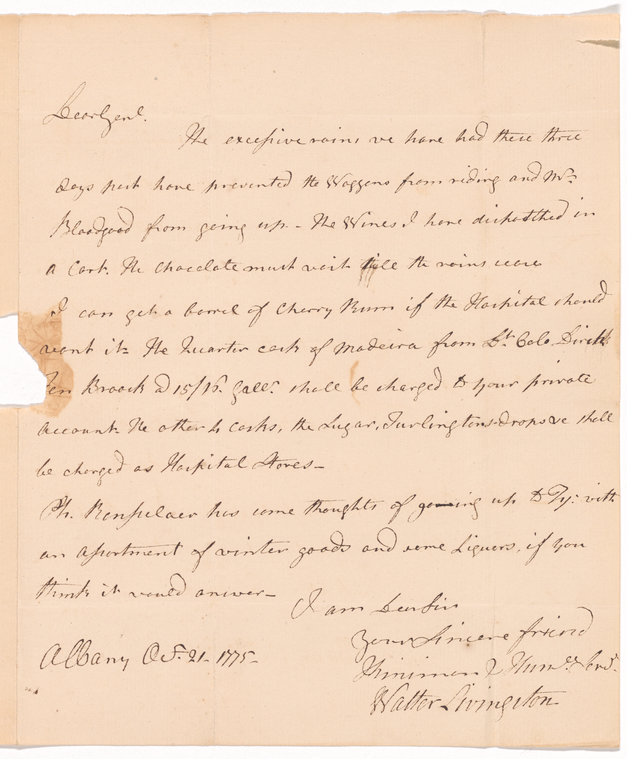 Dear Genl.
The excessive rains we have had these three
days past have prevented the Waggons from riding and Mr.
Bloodgood from going up - The Wines I have dispatched in
a Cart. The Chocolate must wait till the rains cease
I can get a barrel of Cherry Rum if the Hospital should
want it. The Quarter cask of Madeira from Lt. Colo. Dirck
Ten Broeck @ 15/ 16. Galls. shall be charged to your private
account. The other 4 casks, the Sugar, Turlingtons drops &c shall
be charged as Hospital Stores -
Ph. Renselaer has some thoughts of going up to Ty: with
an assortment of winter goods and some Liquors, if you
think it would answer -
I am Dear Sir
Your Sincere friend
& Humble Servt.
Walter Livingston
Albany Oct. 21 - 1775 -